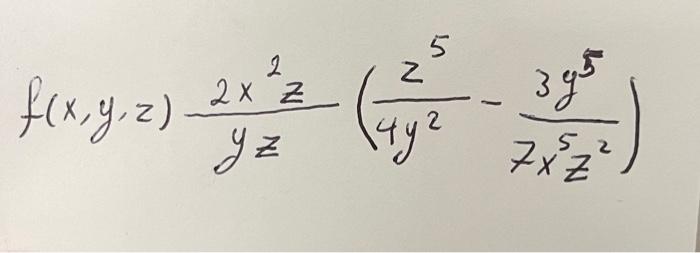 f(x,y,z) \frac{2x^2z}{yz} \left(\frac{z^5}{4y^2} - \frac{3y^5}{7x^5z^2}\right)